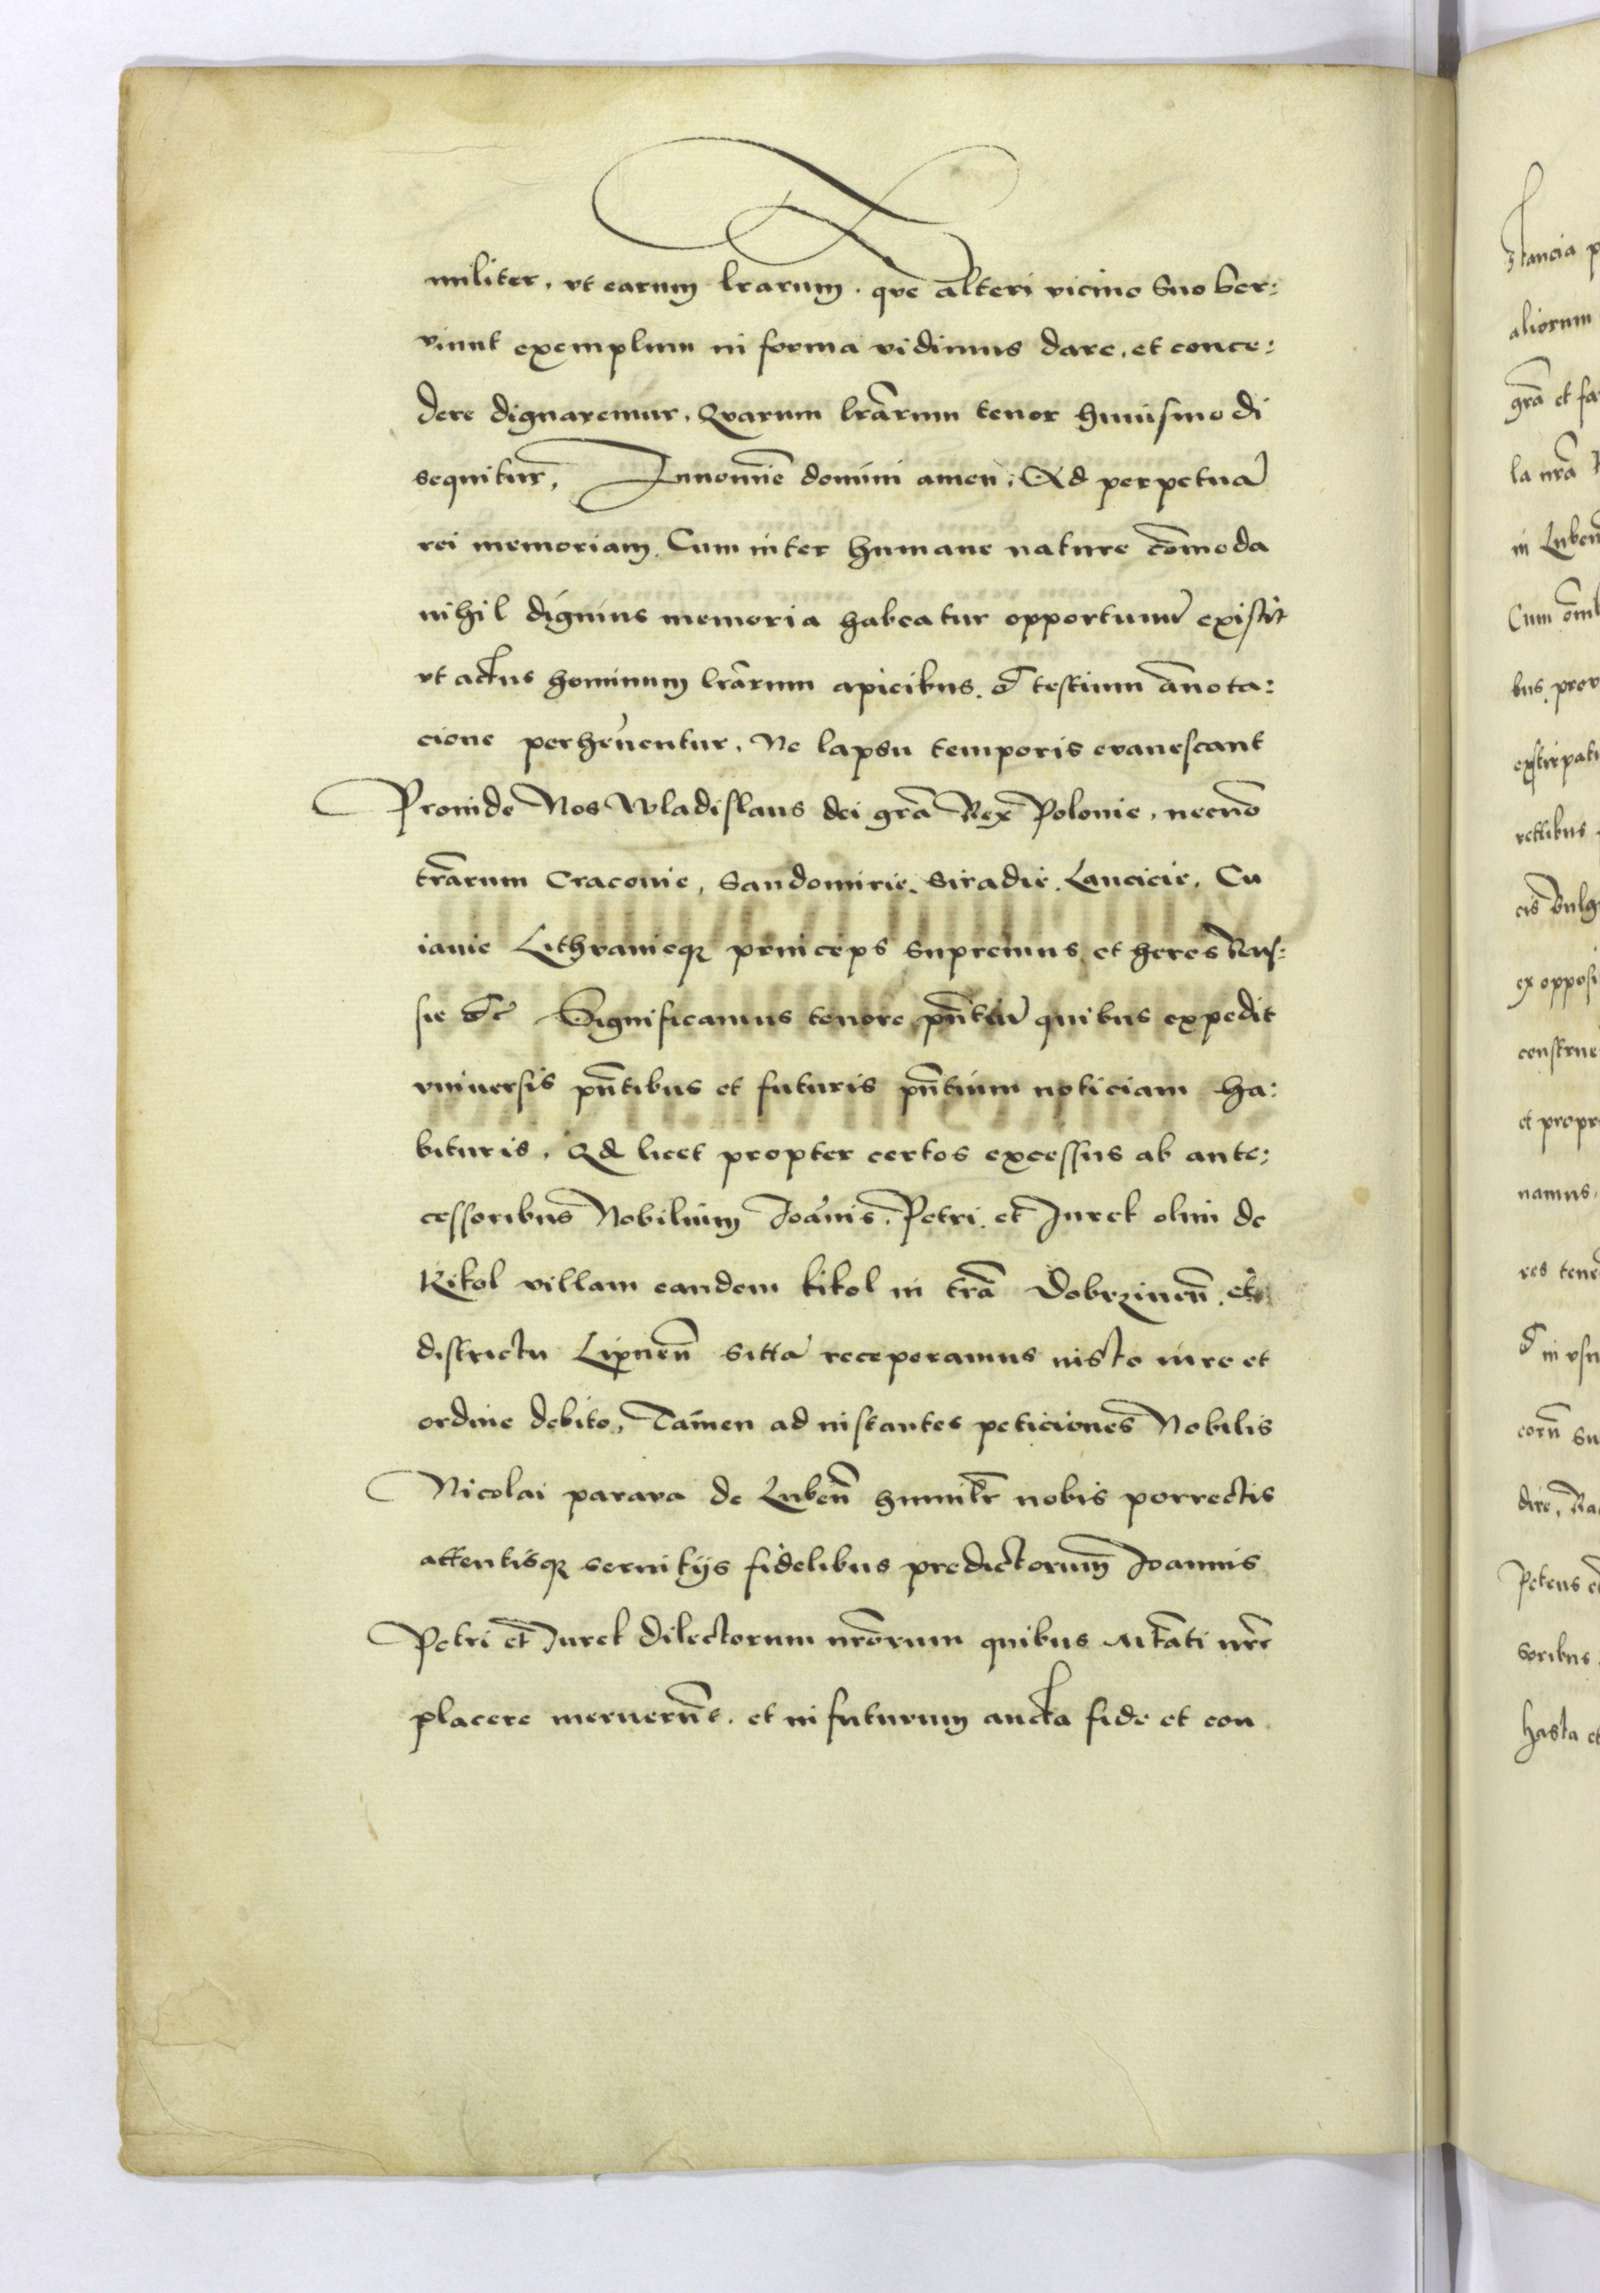 militer, vt earum lrarum. que alteri vicino suo ser:
viunt exemplum in forma vidimus dare, et conce:
dere dignaremur, Quarum lrãrum tenor huiusmodi
sequitur, Innomiē domini amen, Ad perpetuã
rei memoriam, Cum inter humane nature cõmoda
nihil dignius memoria habeatur opportunũ existit
vt actus hominum lrãrum apicibus. & testium ãnota:
cione perhennentur, Ne lapsu temporis evanescant
Proinde Nos Wladislaus dei grã Rex Polonie, necnõ
trãrum Cracouie, Sandomirie, Siradie, Lancicie, Cu
iauie Lithvanieqʒ princeps supremus, et heres Rus:
sie &c̃ Significamus tenore pñtiũ quibus expedit
vniuersis pñtibus et futuris pñtium noticiam ha:
bituris, Qd licet propter certos excessus ab ante:
cessoribus Nobilium Joãnis, Petri, et Jurek olim de
Kikol villam eandem kikol in trã Dobrzineñ, et
districtu Lipneñ sittã receperamus iusto iure et
ordine debito, Tamen ad instantes peticiones Nobilis
Nicolai parara de Lubeñ humilr̃ nobis porrectis
attentisqʒ seruitijs fidelibus predictorum Joannis
Petri et Jurek dilectorum nrõrum quibus Mtãti nrẽ
placere meruerũt, et in futurum aucta fide et con
stancia
aliorum
grã et fa
la nrã
in Lubeñ
Cum
bus, prov
extirpati
rettibus
cis
ex opposi
construe
et propri
namus,
res tene
& in vsu
corũ su
dire, Ra
Petens
soribus
hasta et